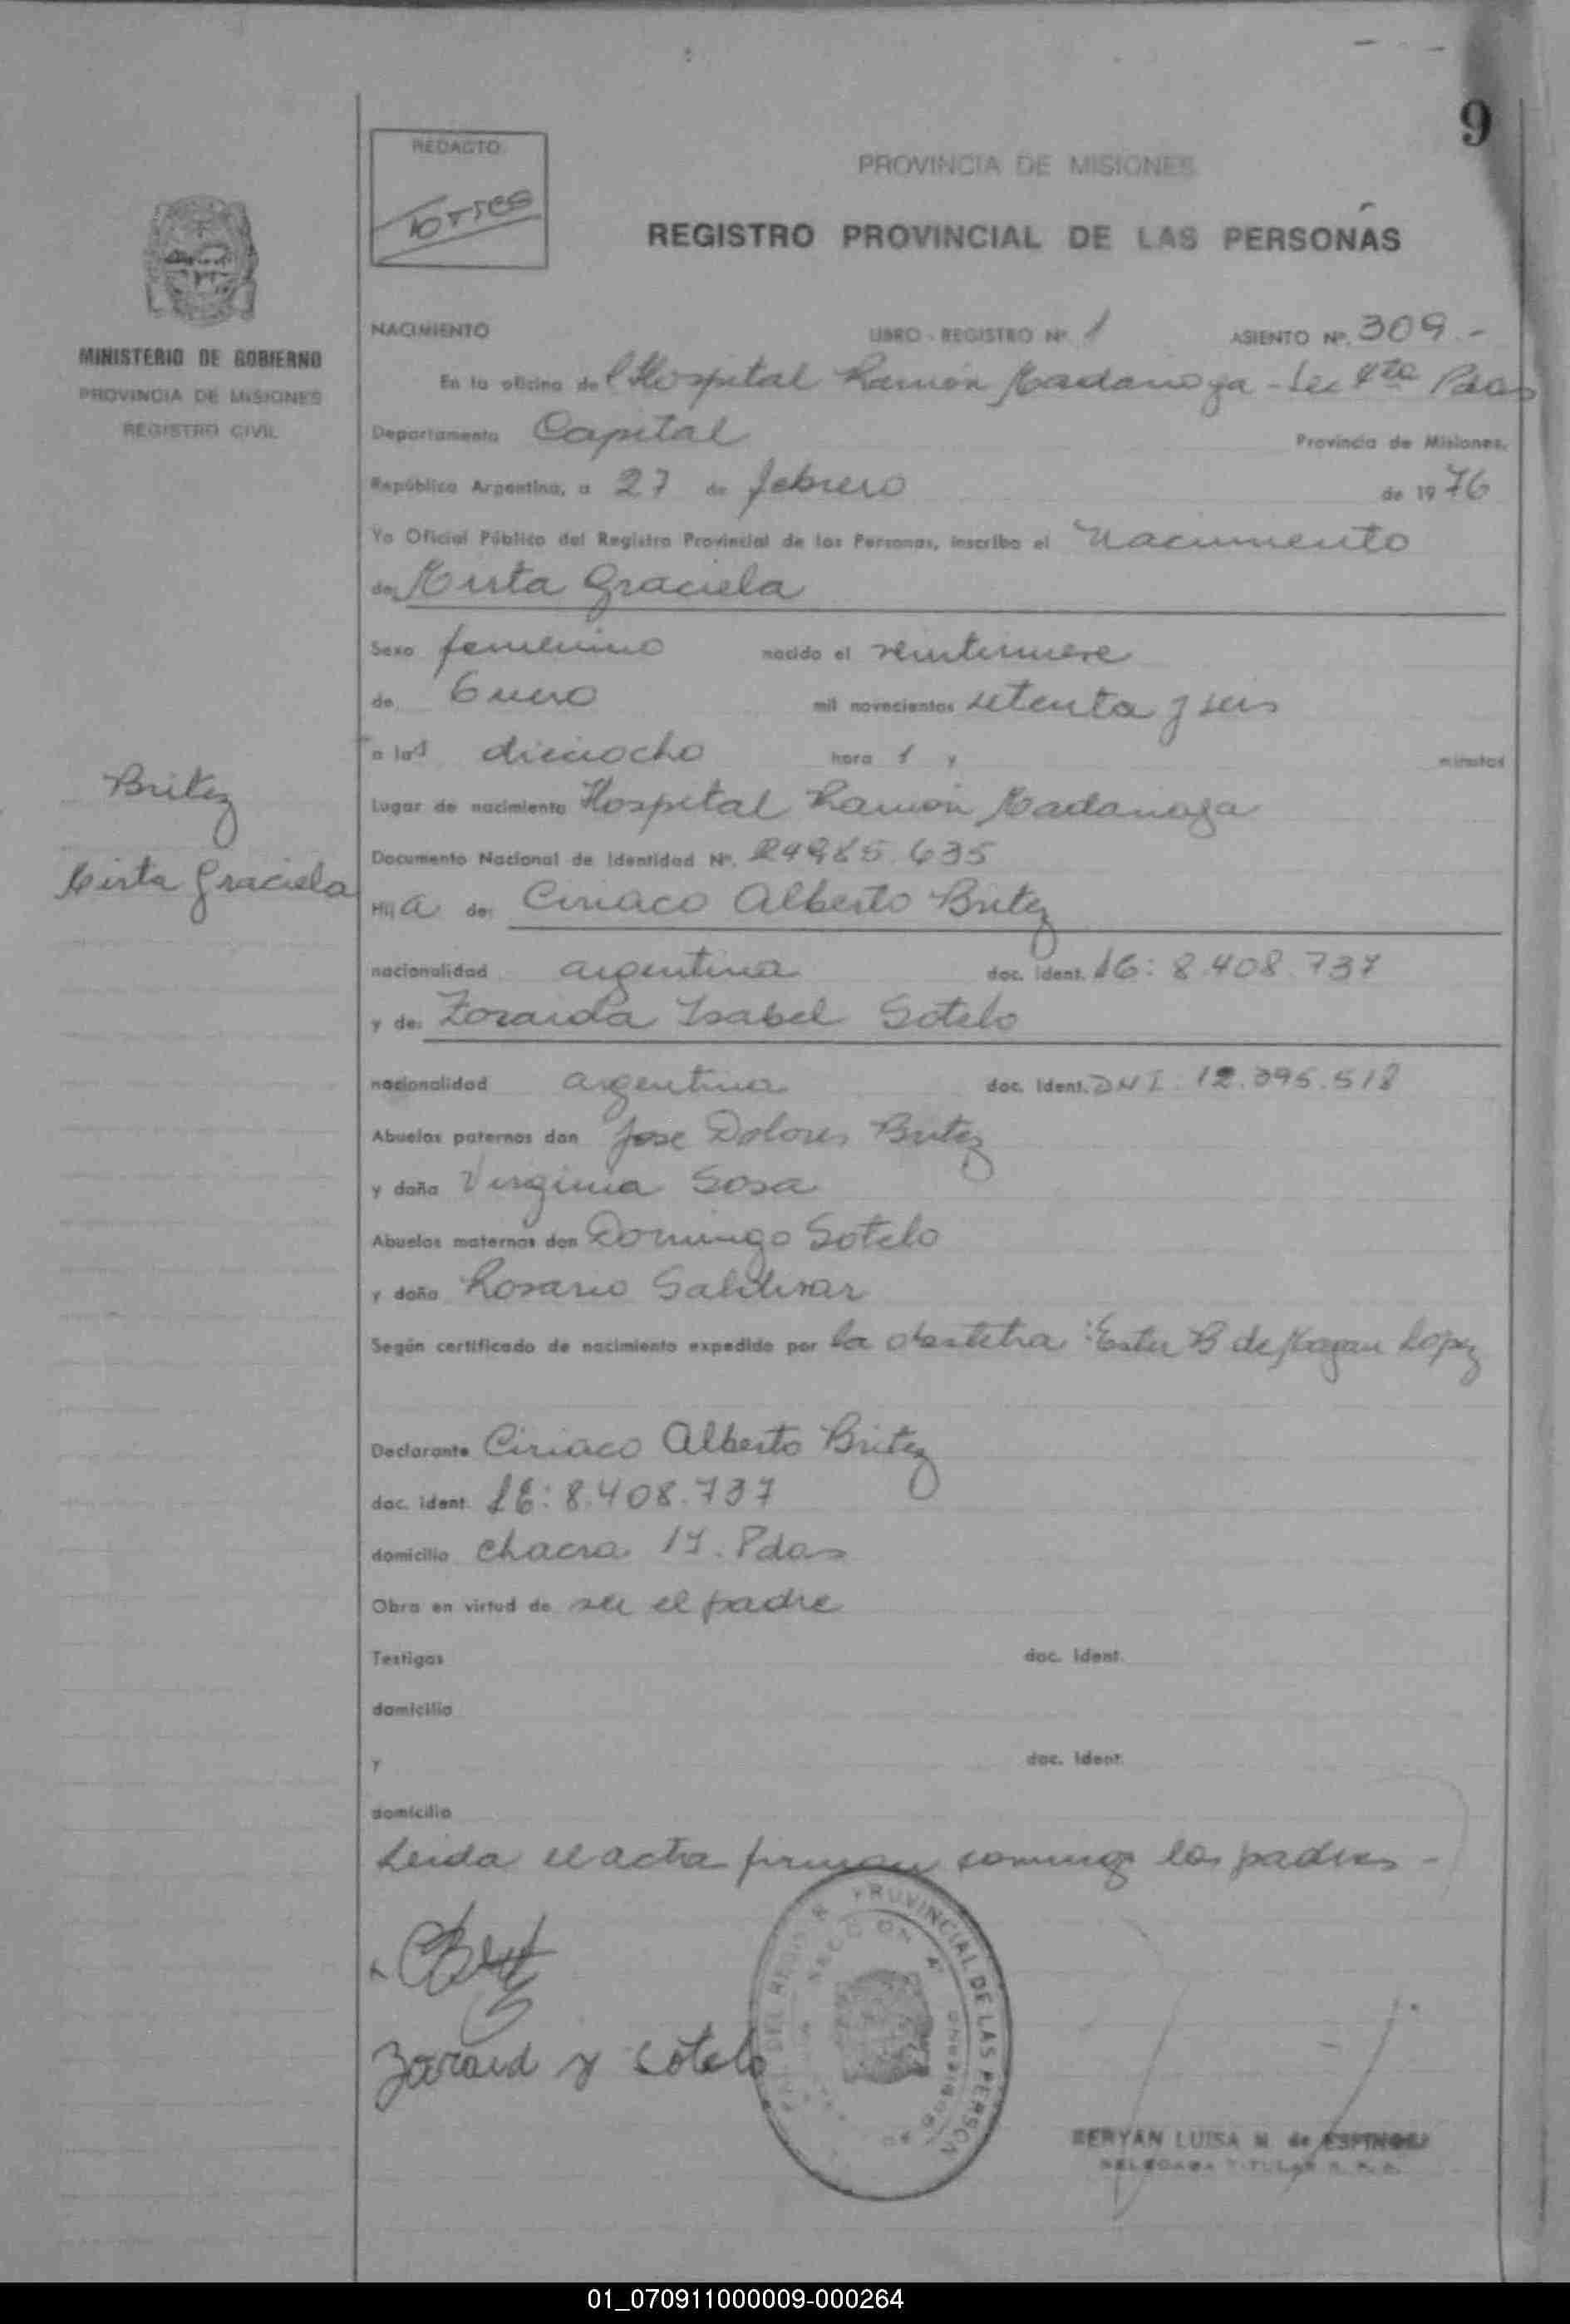 9
REDACTO
Torres
PROVINCIA DE MISIONES
REGISTRO PROVINCIAL DE LAS PERSONAS
MINISTERIO DE GOBIERNO
PROVINCIA DE MISIONES
REGISTRO CIVIL
NACIMIENTO LIBRO - REGISTRO Nº 1 ASIENTO Nº. 309.-
En la oficina del Hospital Ramón Madariaga - Sec 4ta Pdas
Departamento Capital Provincia de Misiones.
República Argentina, a 27 de febrero de 1976
Yo Oficial Público del Registro Provincial de las Personas, inscribo el Nacimiento
de: Mirta Graciela
Sexo femenino nacido el veintinueve
de Enero mil novecientos setenta y seis
a las dieciocho hora 1 y minutos
Lugar de nacimiento Hospital Ramón Madariaga
Documento Nacional de Identidad Nº. 24985.635
Britez
Mirta Graciela
Hija de: Ciriaco Alberto Britez
nacionalidad argentina doc. ident. LE: 8.408.737
y de: Zoraida Isabel Sotelo
nacionalidad argentina doc. ident. DNI 12.395.518
Abuelos paternos don Jose Dolores Britez
y doña Virginia Sosa
Abuelos maternos don Domingo Sotelo
y doña Rosario Saldivar
Según certificado de nacimiento expedido por la obstetra: Ester B de Lopez
Declarante Ciriaco Alberto Britez
doc. ident. LE: 8.408.737
domicilio chacra 17. Pdas
Obra en virtud de ser el padre
Testigos doc. ident.
domicilio
y doc. ident.
domicilio
Leida el acta firman conmigo los padres -
Zoraid y Sotelo
PROVINCIAL DE LAS PERSON
LUISA M. de ESPINOSA
DELEGADA TITULAR
01_070911000009-000264